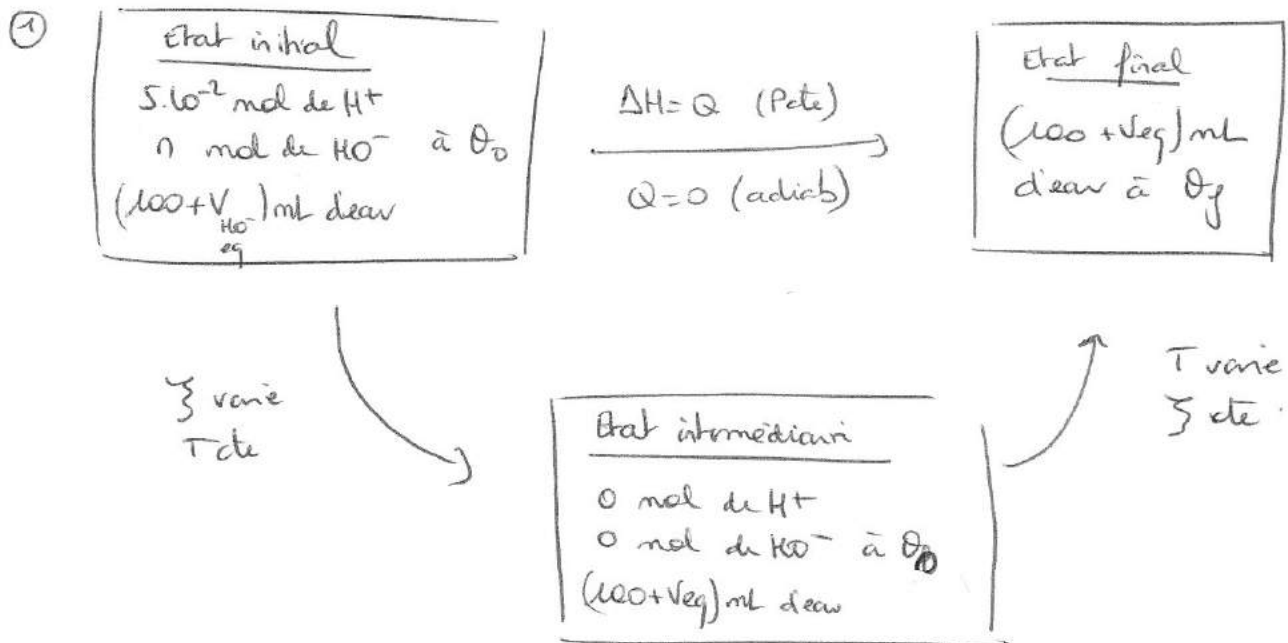 ①
Etat initial
5.10⁻² mol de H⁺
n mol de HO⁻ à θ₀
(100 + V_HO⁻ eq) mL d'eau
ΔH = Q (Pcte)
Q = 0 (adiab)
Etat final
(100 + Veq) mL
d'eau à θf
ξ varie
T cte
Etat intermédiaire
0 mol de H⁺
0 mol de HO⁻ à θ₀
(100 + Veq) mL d'eau
T varie
ξ cte